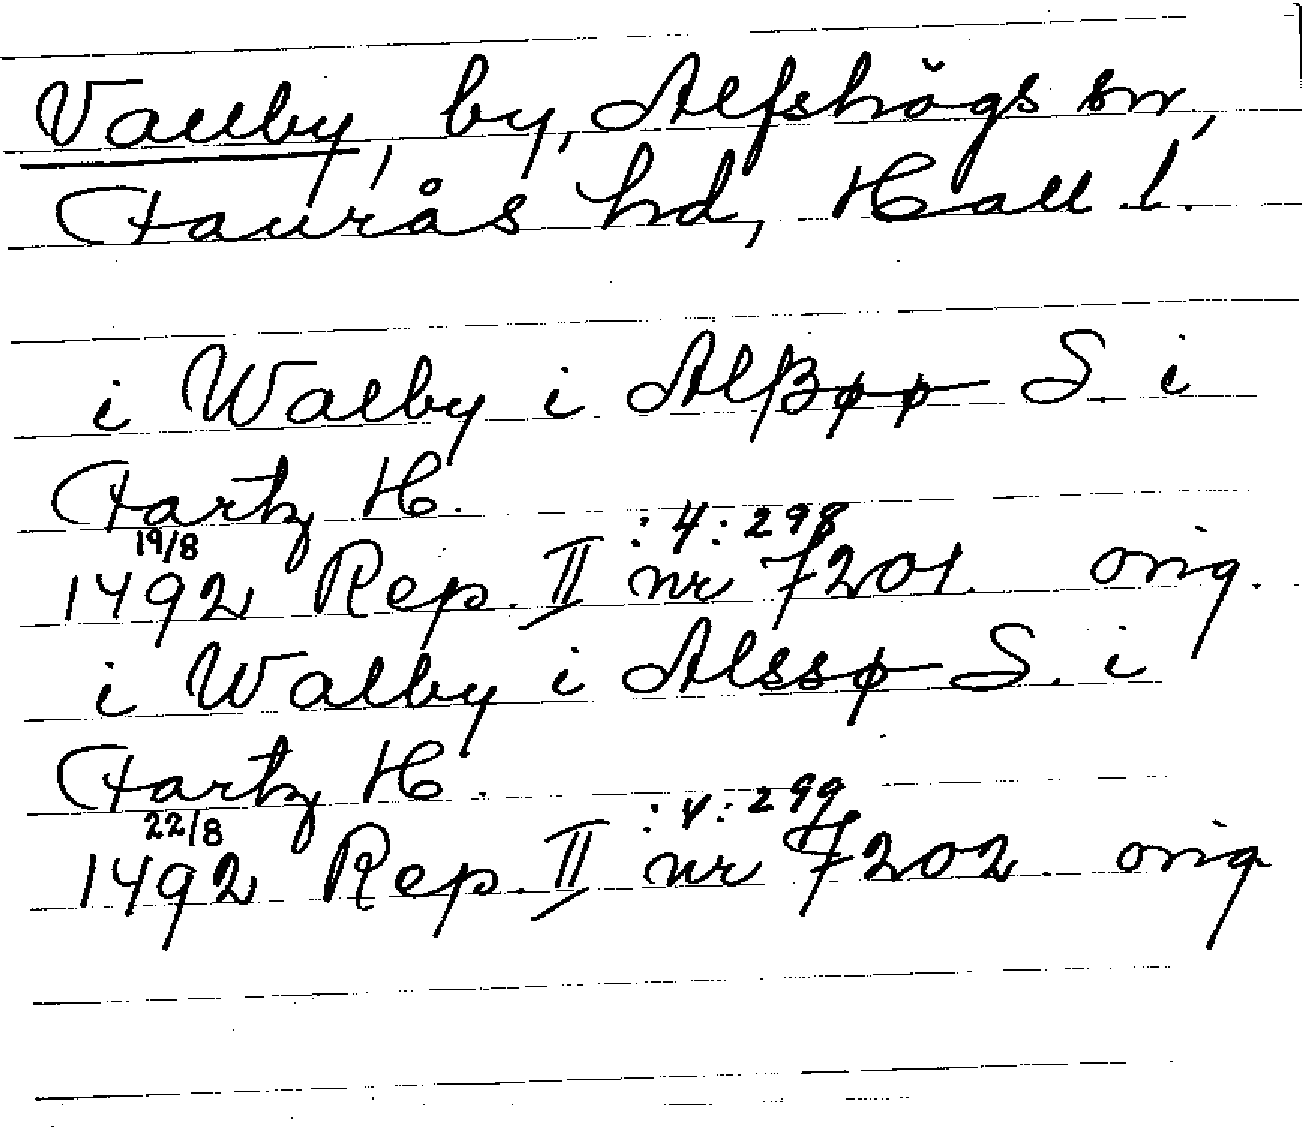 Vallby, by, Alfshögs sn,
Faurås hd, Hall l.
i Walby i Alsβøø S. i
Fartz H.
: 4 : 298
19/8
1492 Rep. II nr 7201. orig.
i Walby i Alssø S. i
Fartz H.
: V : 299
22/8
1492 Rep. II nr 7202. orig